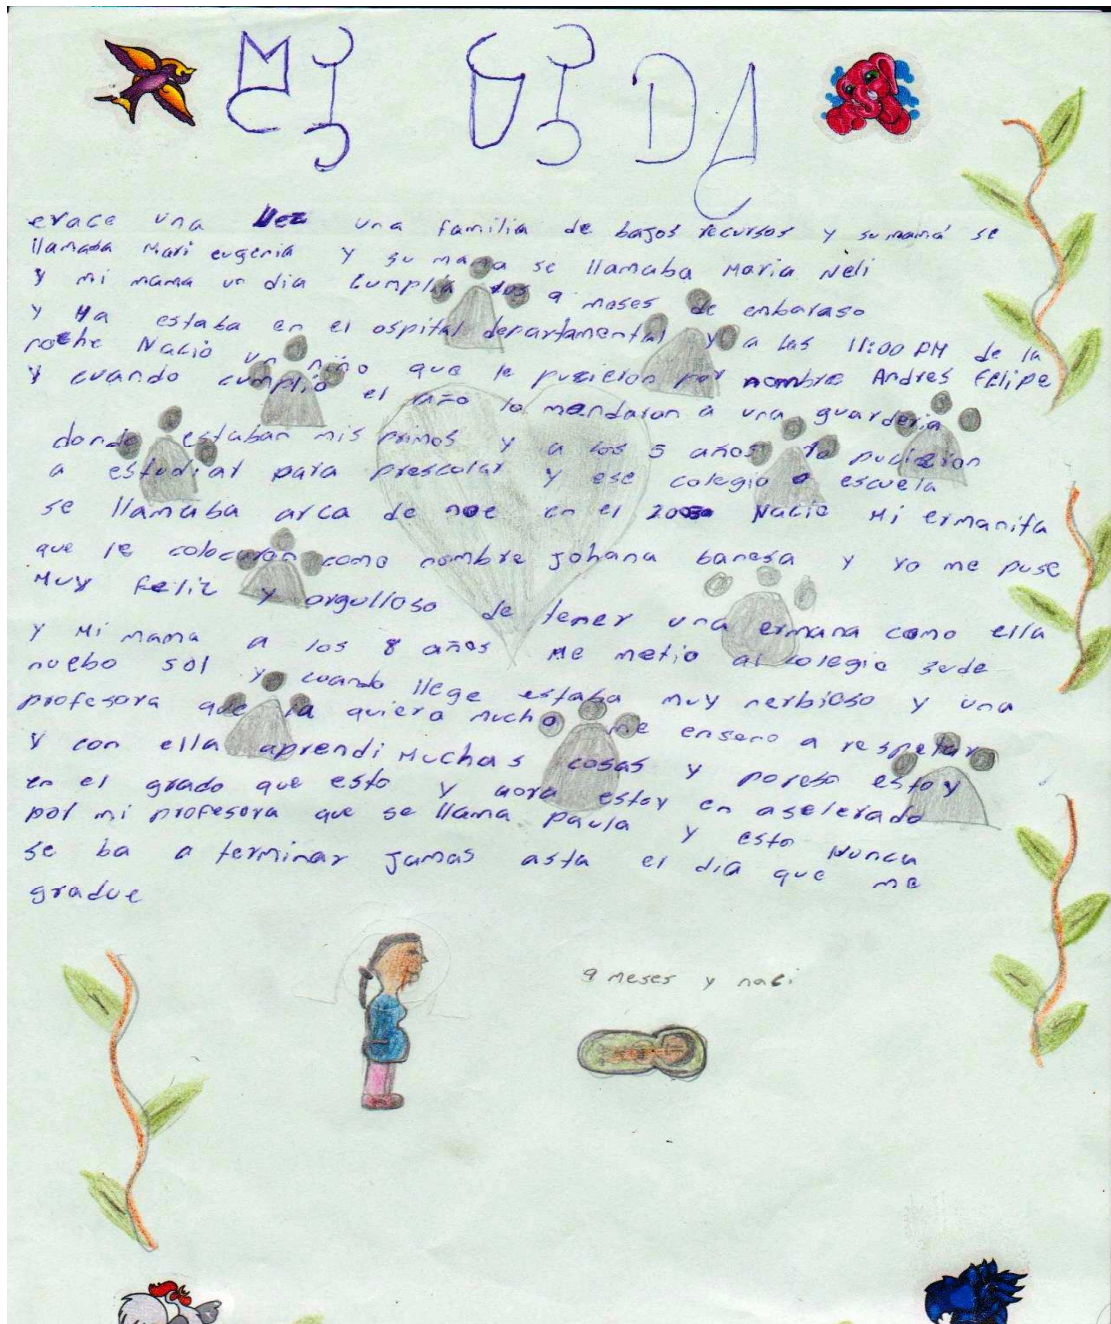 Mi VIDA
erace una vez una familia de bajos recursos y su mamá se
llamaba Mari eugenia y su mama se llamaba Maria Neli
y mi mama un dia cumplia los 9 meses de embaraso
y Ha estaba en el ospital departamental y a las 11:00 PM de la
noche Nacio un niño que le pucieron por nombre Andres Felipe
y cuando cumplio el año lo mandaron a una guarderia
donde estaban mis primos y a los 5 años lo pucieron
a estudiar para prescolar y ese colegio o escuela
se llamaba arca de noe en el Nacio Mi ermanita
que le colocaron como nombre Johana banesa y yo me puse
Muy feliz y orgulloso de tener una ermana como ella
y Mi mama a los 8 años Me metio al colegio sede
nuebo sol y cuando llege estaba muy nerbioso y una
profesora que la quiero mucho me enseno a respetar
y con ella aprendi Muchas cosas y poreso estoy
en el grado que esto y aora estoy en aselerado
por mi profesora que se llama Paula y esto Nunca
se ba a terminar Jamas asta el dia que me
gradue
9 meses y naci